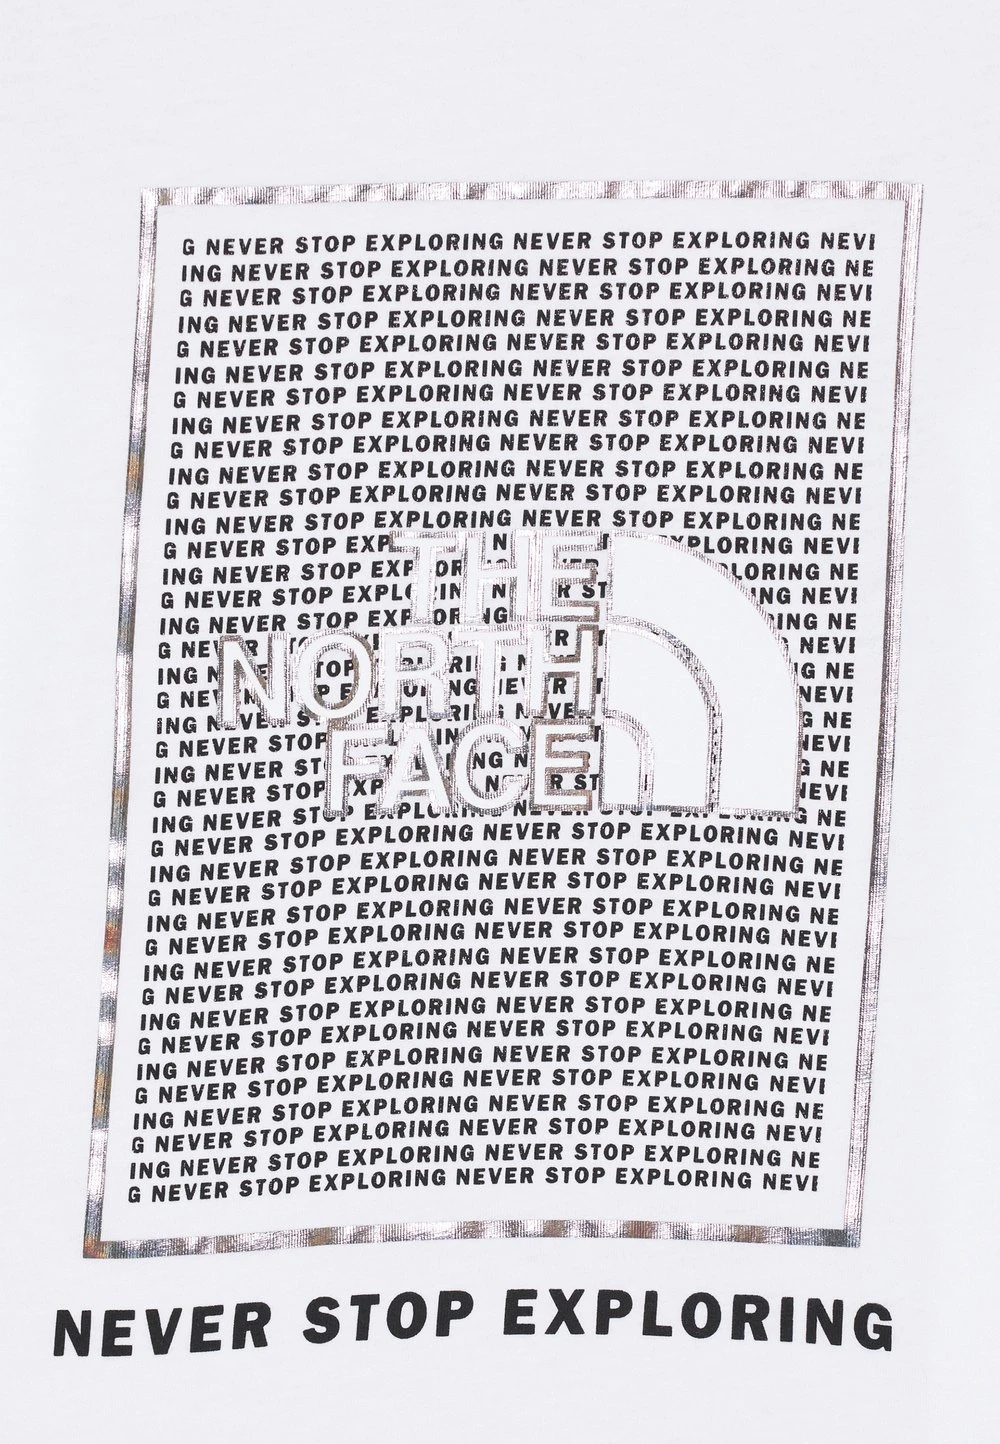 G NEVER STOP EXPLORING NEVER STOP EXPLORING NEVI
ING NEVER STOP EXPLORING NEVER STOP EXPLORING NE
G NEVER STOP EXPLORING NEVER STOP EXPLORING NEVI
ING NEVER STOP EXPLORING NEVER STOP EXPLORING NE
G NEVER STOP EXPLORING NEVER STOP EXPLORING NEVI
ING NEVER STOP EXPLORING NEVER STOP EXPLORING NE
G NEVER STOP EXPLORING NEVER STOP EXPLORING NEVI
ING NEVER STOP EXPLORING NEVER STOP EXPLORING NE
G NEVER STOP EXPLORING NEVER STOP EXPLORING NEVI
ING NEVER STOP EXPLORING NEVER STOP EXPLORING NE
G NEVER STOP EXPLORING NEVER STOP EXPLORING NEVI
ING NEVER STOP EXPLORING NEVER STOP EXPLORING NE
G NEVER STOP NEVI
ING NEVER STOP NE
G NEVER STOP NEVI
ING NEVER STOP NE
THE
NORTH
FACE
G NEVI
ING NE
G NEVI
ING NE
G NEVER STOP
ING NEVER NE
G NEVER STOP
ING NEVER NE
G NEVER STOP EXPLORING NEVER STOP EXPLORING NEVI
ING NEVER STOP EXPLORING NEVER STOP EXPLORING NE
G NEVER STOP EXPLORING NEVER STOP EXPLORING NEVI
ING NEVER STOP EXPLORING NEVER STOP EXPLORING NE
G NEVER STOP EXPLORING NEVER STOP EXPLORING NEVI
ING NEVER STOP EXPLORING NEVER STOP EXPLORING NE
G NEVER STOP EXPLORING NEVER STOP EXPLORING NEVI
ING NEVER STOP EXPLORING NEVER STOP EXPLORING NE
G NEVER STOP EXPLORING NEVER STOP EXPLORING NEVI
ING NEVER STOP EXPLORING NEVER STOP EXPLORING NE
G NEVER STOP EXPLORING NEVER STOP EXPLORING NEVI
ING NEVER STOP EXPLORING NEVER STOP EXPLORING NE
G NEVER STOP EXPLORING NEVER STOP EXPLORING NEVI
ING NEVER STOP EXPLORING NEVER STOP EXPLORING NE
G NEVER STOP EXPLORING NEVER STOP EXPLORING NEVI
NEVER STOP EXPLORING